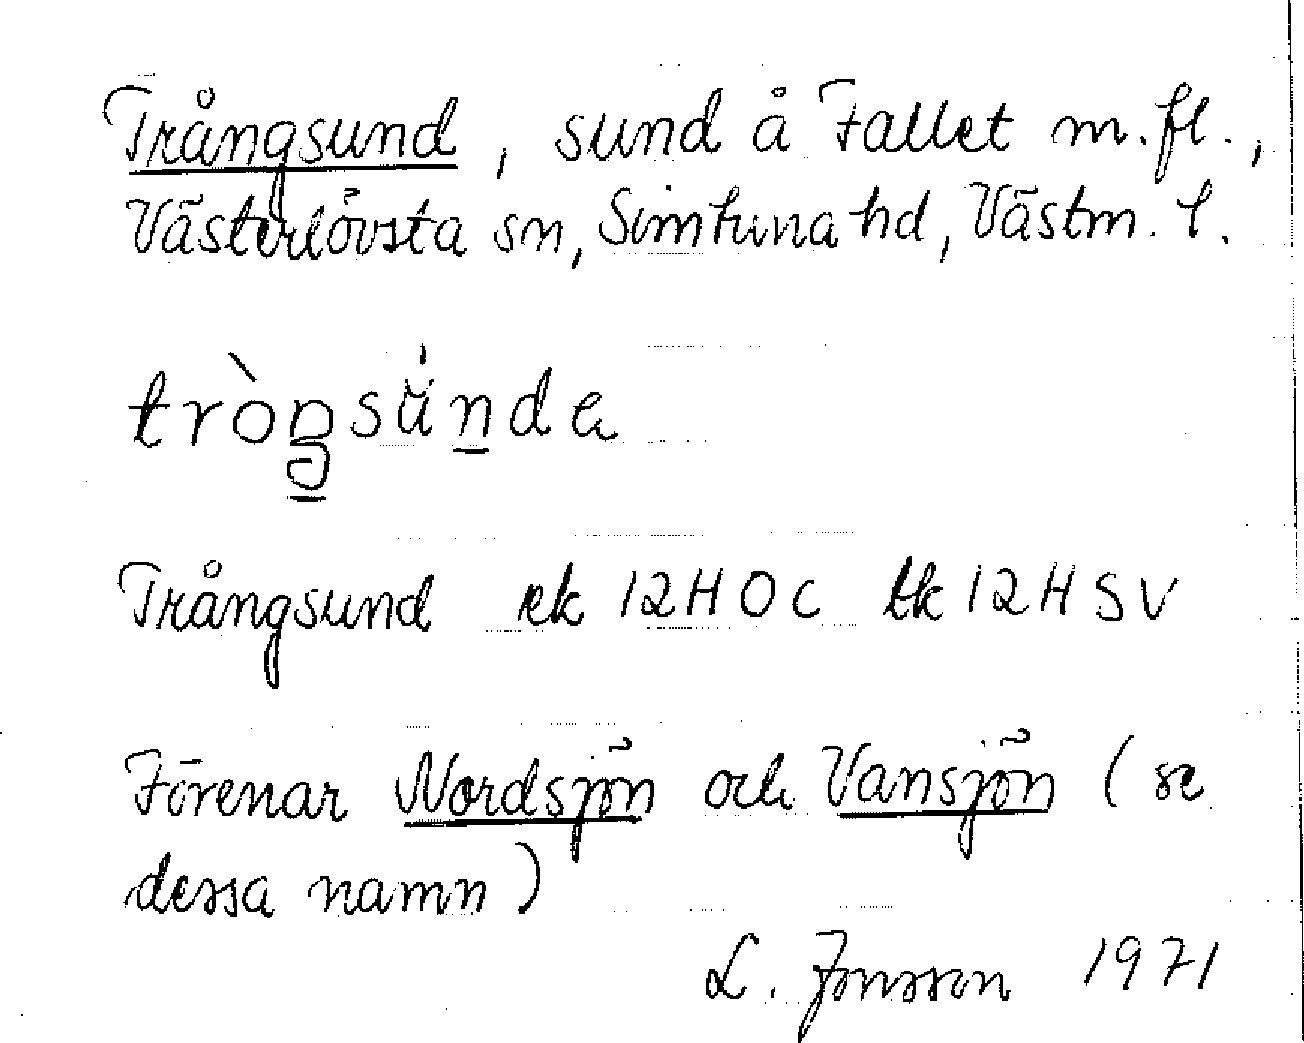 Trångsund, sund å Fallet m.fl.,
Västerlövsta sn, Simtuna hd, Västm. l.
tròŋsŭ̀nda
Trångsund ek 12H 0c tk 12H SV
Förenar Nordsjön och Vansjön (se
dessa namn)
L. Jonsson 1971